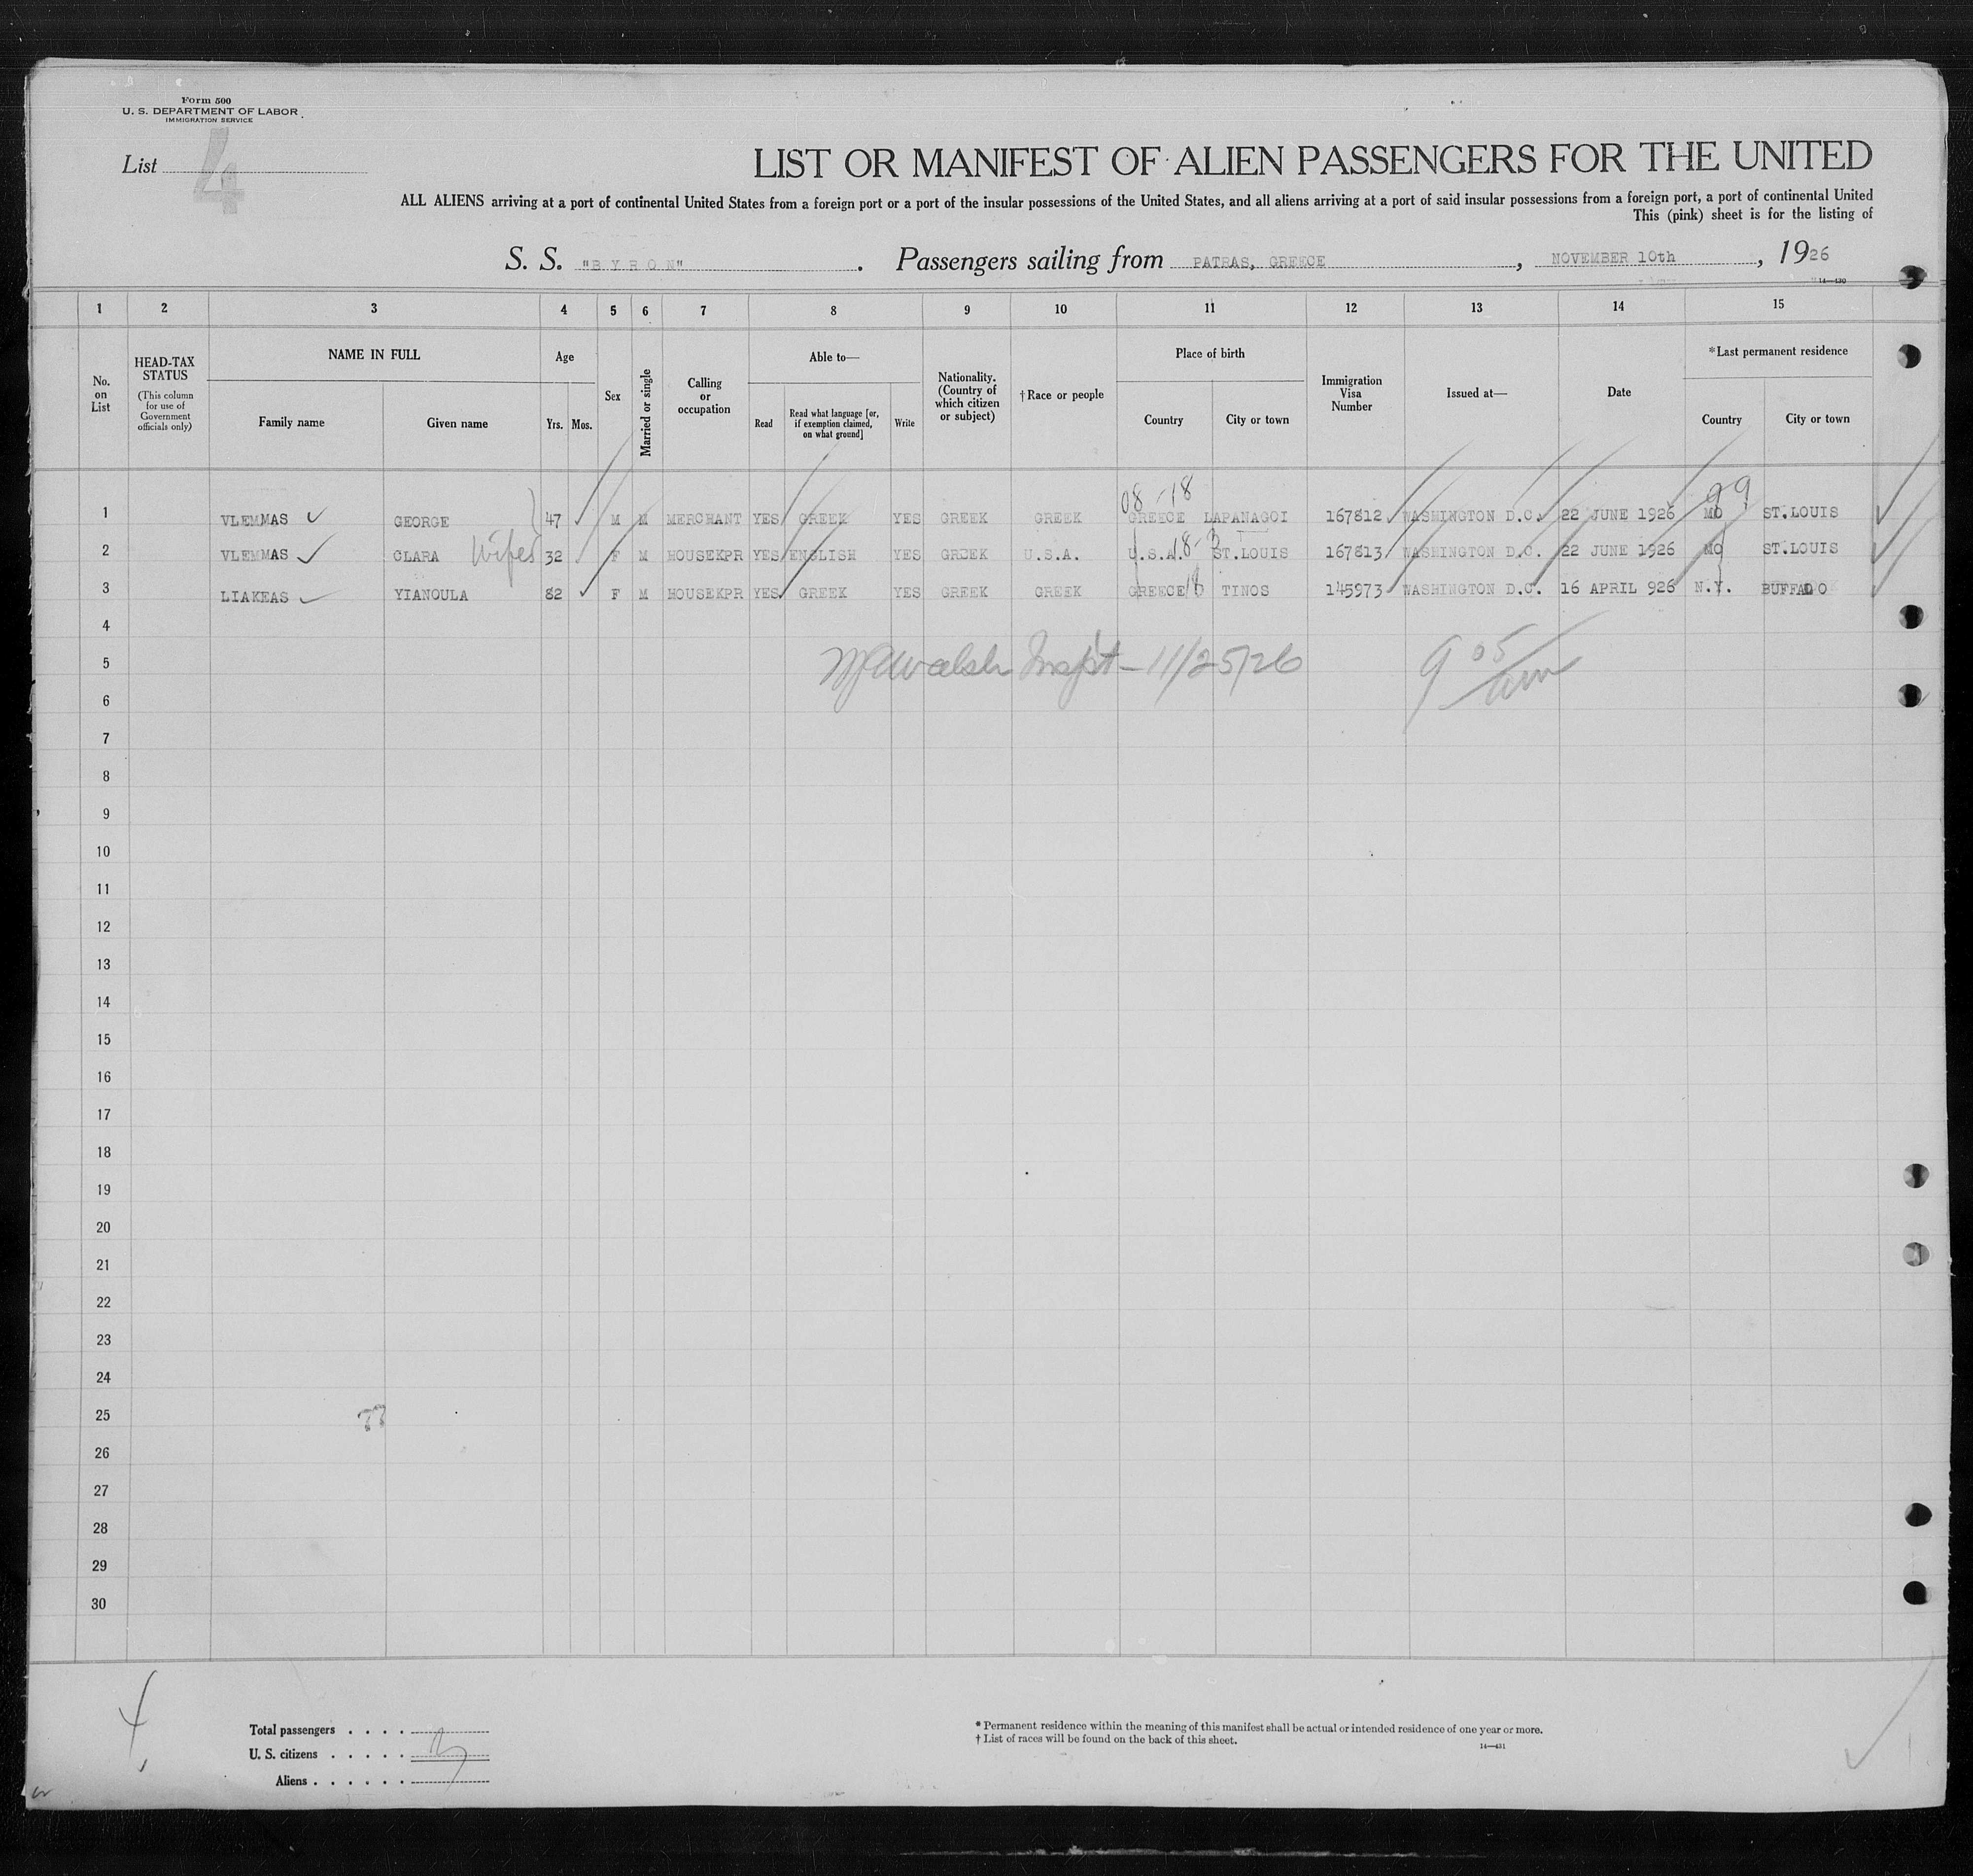 Form 500
U. S. DEPARTMENT OF LABOR
IMMIGRATION SERVICE
List 4
LIST OR MANIFEST OF ALIEN PASSENGERS FOR THE UNITED
ALL ALIENS arriving at a port of continental United States from a foreign port or a port of the insular possessions of the United States, and all aliens arriving at a port of said insular possessions from a foreign port, a port of continental United
This (pink) sheet is for the listing of
S. S. "BYRON". Passengers sailing from PATRAS, GREECE, NOVEMBER 10th, 1926
14—430
1 2 3 4 5 6 7 8 9 10 11 12 13 14 15
No. on List
HEAD-TAX STATUS
(This column for use of Government officials only)
NAME IN FULL
Family name Given name
Age
Yrs. Mos.
Sex
Married or single
Calling or occupation
Able to—
Read
Read what language [or, if exemption claimed, on what ground]
Write
Nationality. (Country of which citizen or subject)
† Race or people
Place of birth
Country City or town
Immigration Visa Number
Issued at—
Date
*Last permanent residence
Country City or town
08 -18 99
1 VLEMMAS GEORGE 47 M M MERCHANT YES GREEK YES GREEK GREEK GREECE LAPANAGOI 167812 WASHINGTON D.C. 22 JUNE 1926 MO ST.LOUIS
2 VLEMMAS CLARA Wife 32 F M HOUSEKPR YES ENGLISH YES GREEK U.S.A. U.S.A. 18-3 ST.LOUIS 167813 WASHINGTON D.C. 22 JUNE 1926 MO ST.LOUIS
3 LIAKEAS YIANOULA 82 F M HOUSEKPR YES GREEK YES GREEK GREEK GREECE 18 TINOS 145973 WASHINGTON D.C. 16 APRIL 926 N.Y. BUFFALO
4
5 Walsh Inspt - 11/25/26 9 05 am
6
7
8
9
10
11
12
13
14
15
16
17
18
19
20
21
22
23
24
25
26
27
28
29
30
Total passengers . . . .
U. S. citizens . . . . .
Aliens . . . . . .
* Permanent residence within the meaning of this manifest shall be actual or intended residence of one year or more.
† List of races will be found on the back of this sheet.
14—431